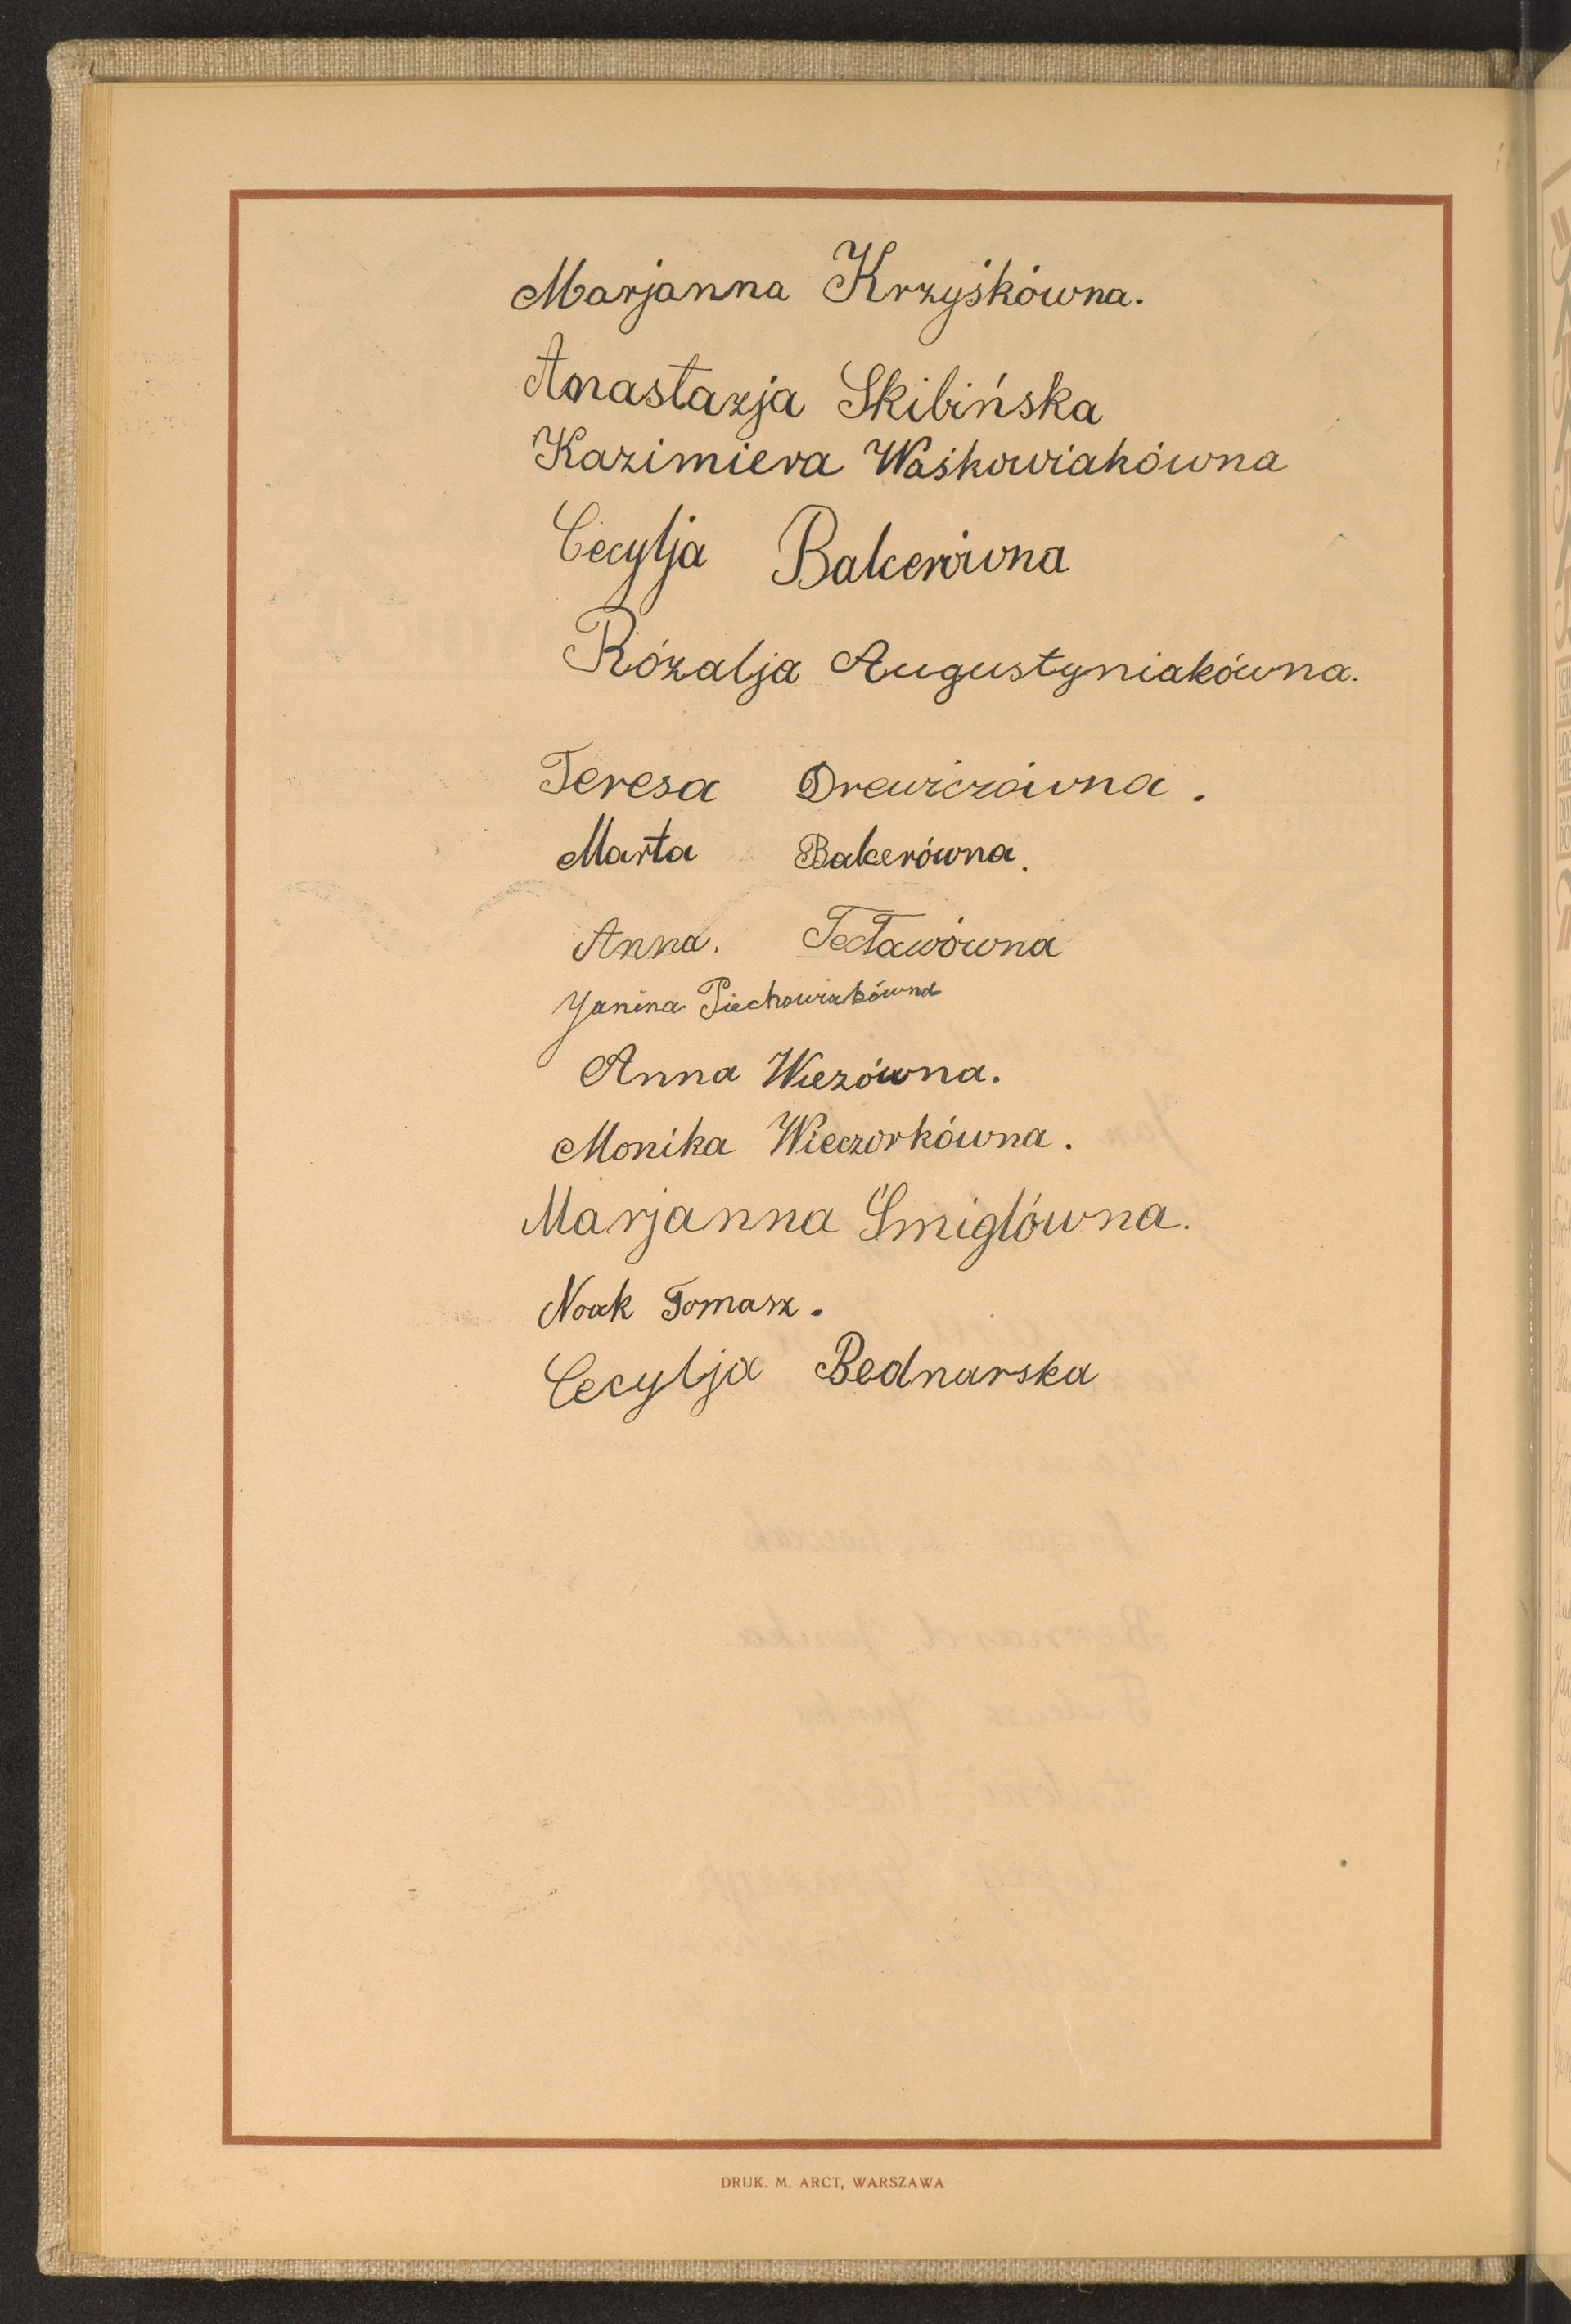 Marjanna Krzyśkówna.
Anastazja Skibińska
Kazimiera Waśkowiakówna
Cecylja Balcerówna
Rózalja Augustyniakówna.
Teresa Drewiczówna.
Marta Balcerówna.
Anna.
Janina Piechowiakówna
Anna Wiezówna.
Monika Wieczorkówna.
Marjanna Śmiglówna.
Noak Tomasz.
Cecylja Bednarska
DRUK. M. ARCT, WARSZAWA